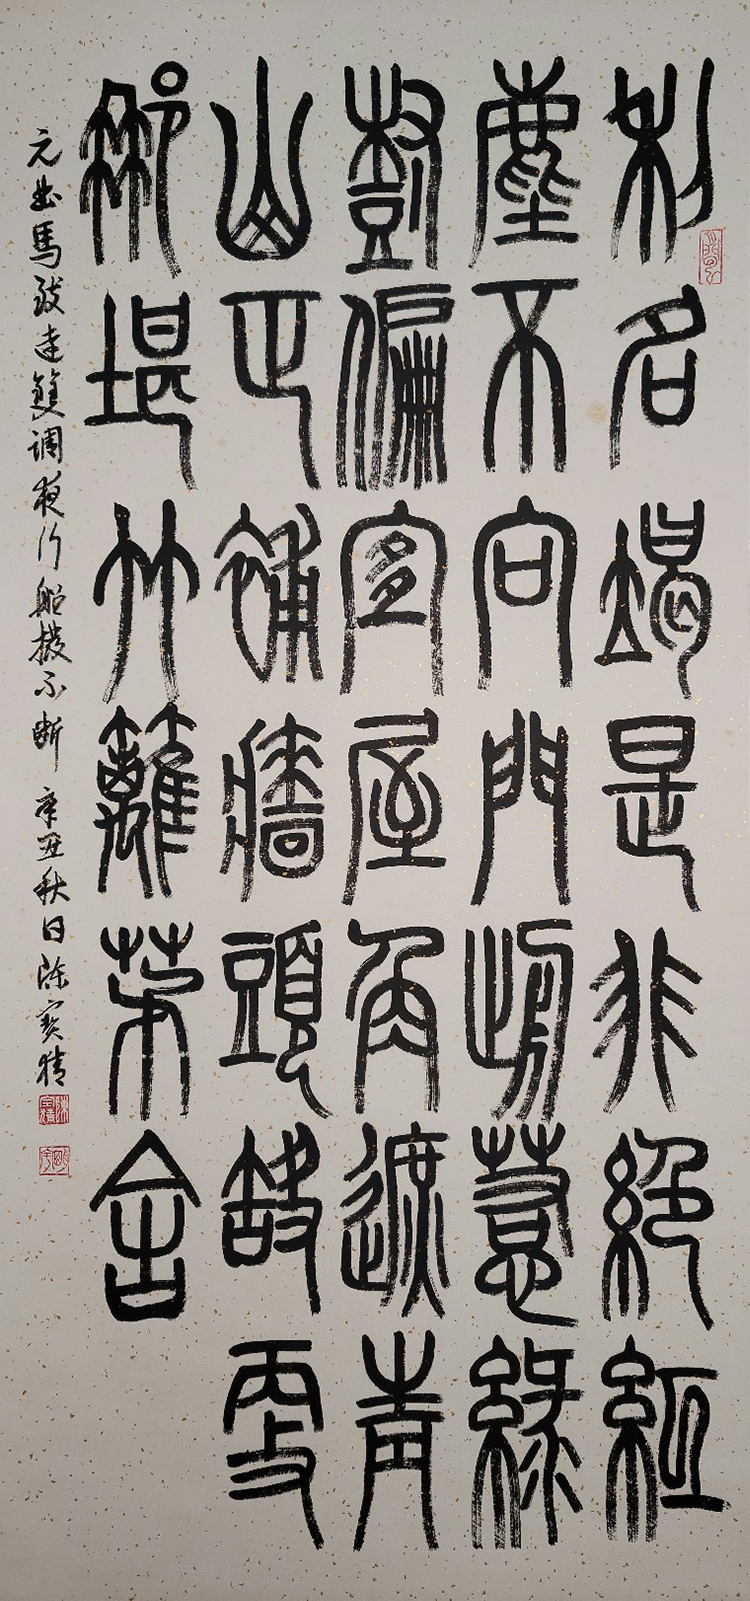 利名竭是非絕紅
塵不向門前惹綠
樹偏宜屋角遮青
山正補牆頭缺更
那堪竹籬茅舍
元曲馬致遠雙調夜行船撥不断 辛丑秋日陳寶